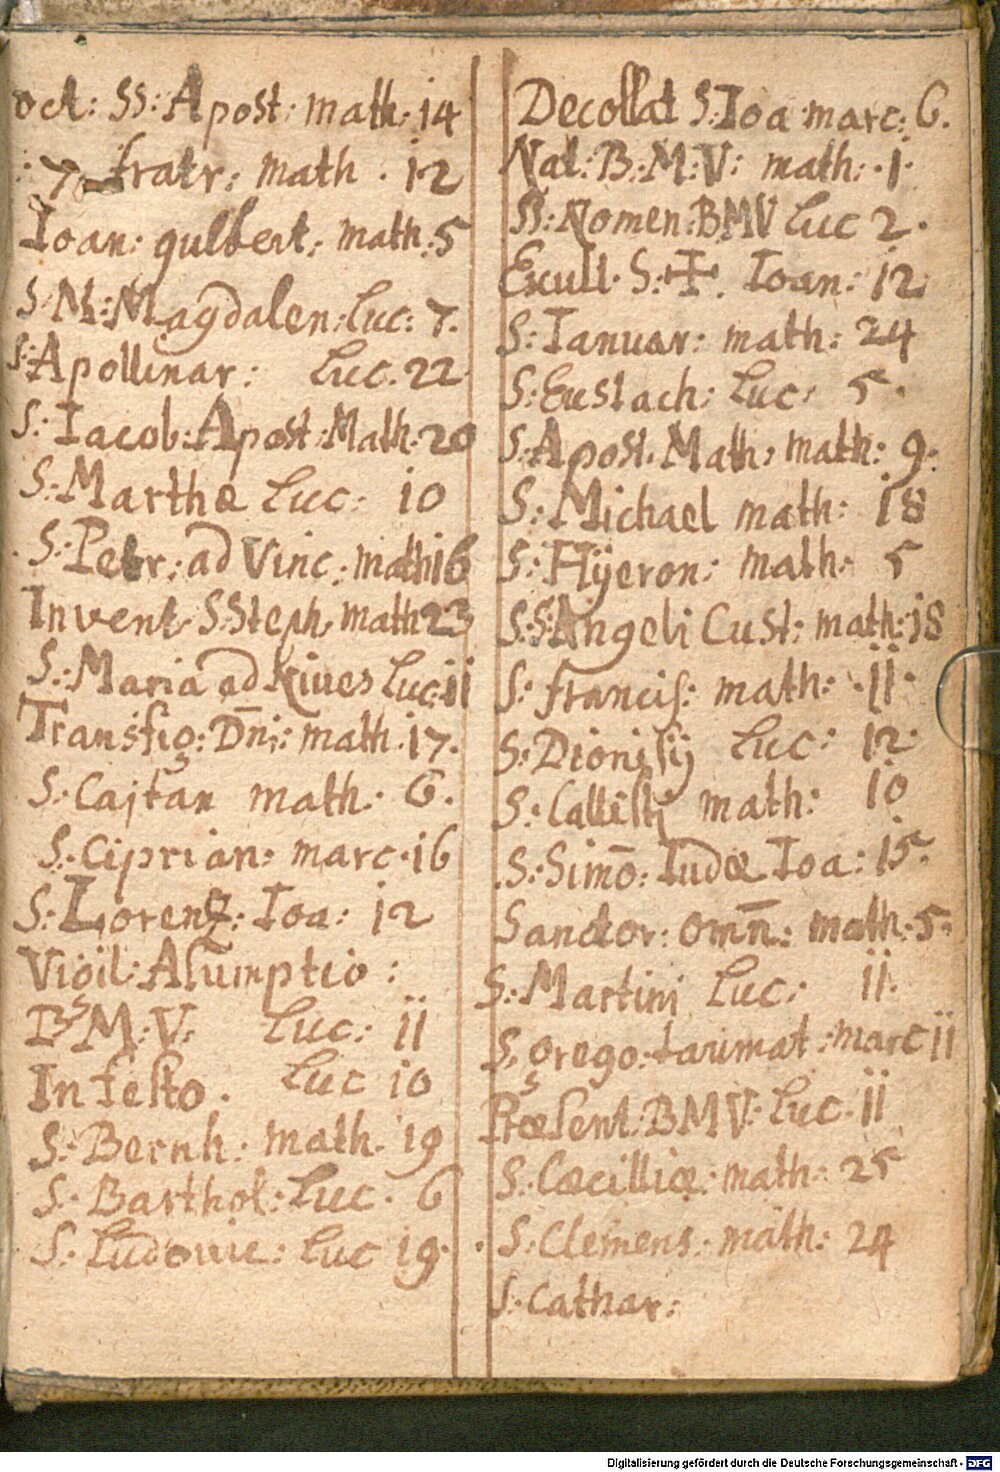 oct: SS: Apost: math: 14
: 7 fratr: math . 12
Ioan: gulbert: math: 5
S: M: Magdalen: Luc: 7.
S: Apollinar: Luc. 22
S: Iacob: Apost: Math: 20
S: Marthæ Luc: 10
S: Petr: ad Vinc: math 16
Invent S: Steph math 23
S: Maria ad Nives Luc: 11
Transfig: Dn̄i: math. 17.
S. Cajtan math. 6.
S: Ciprian: marc. 16
S: Lorenz: Ioa: 12
Vigil: Asumptio:
Bˢ M: V: Luc: 11
In festo. Luc 10
S: Bernh: math. 19
S. Barthol: Luc. 6
S. Ludovic: Luc 19.
Decollat S: Ioa marc: 6.
Nat: B: M: V: math: . 1.
SS: Nomen: BMV Luc 2.
Exull. S: ✠. Ioan: 12
S: Ianuar: math: 24
S: Eustach: Luc: 5.
S: Apost. Math: math: 9.
S: Michael math: 18
S: Hÿeron: math: 5
S: S: Angeli Cust: math: 18
S. francis: math: . 11.
S: Dionisij Luc: 12.
S: Callisti math: 10
S: Simō: Iudæ Ioa: 15.
Sanctor: omn̄: math. 5.
S: Martini Luc: 11.
S. grego: taumat: marc 11
Præsent: BMV: Luc. 11
S: Cæcilliæ: math: 25
S: Clemens: math: 24
S: Cathar:
Digitalisierung gefördert durch die Deutsche Forschungsgemeinschaft - DFG